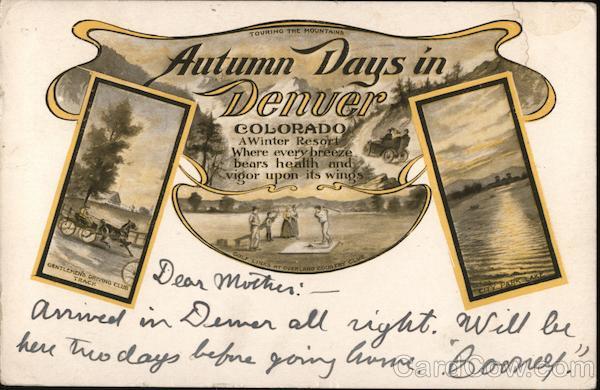 TOURING THE MOUNTAINS
Autumn Days in
Denver
COLORADO
A Winter Resort
Where every breeze
bears health and
vigor upon its wings
GENTLEMEN'S DRIVING CLUB
TRACK
GOLF LINKS AT OVERLAND COUNTRY CLUB
CITY PARK LAKE
Dear Mother:—
Arrived in Denver all right. Will be
here two days before going home
CardCow.com